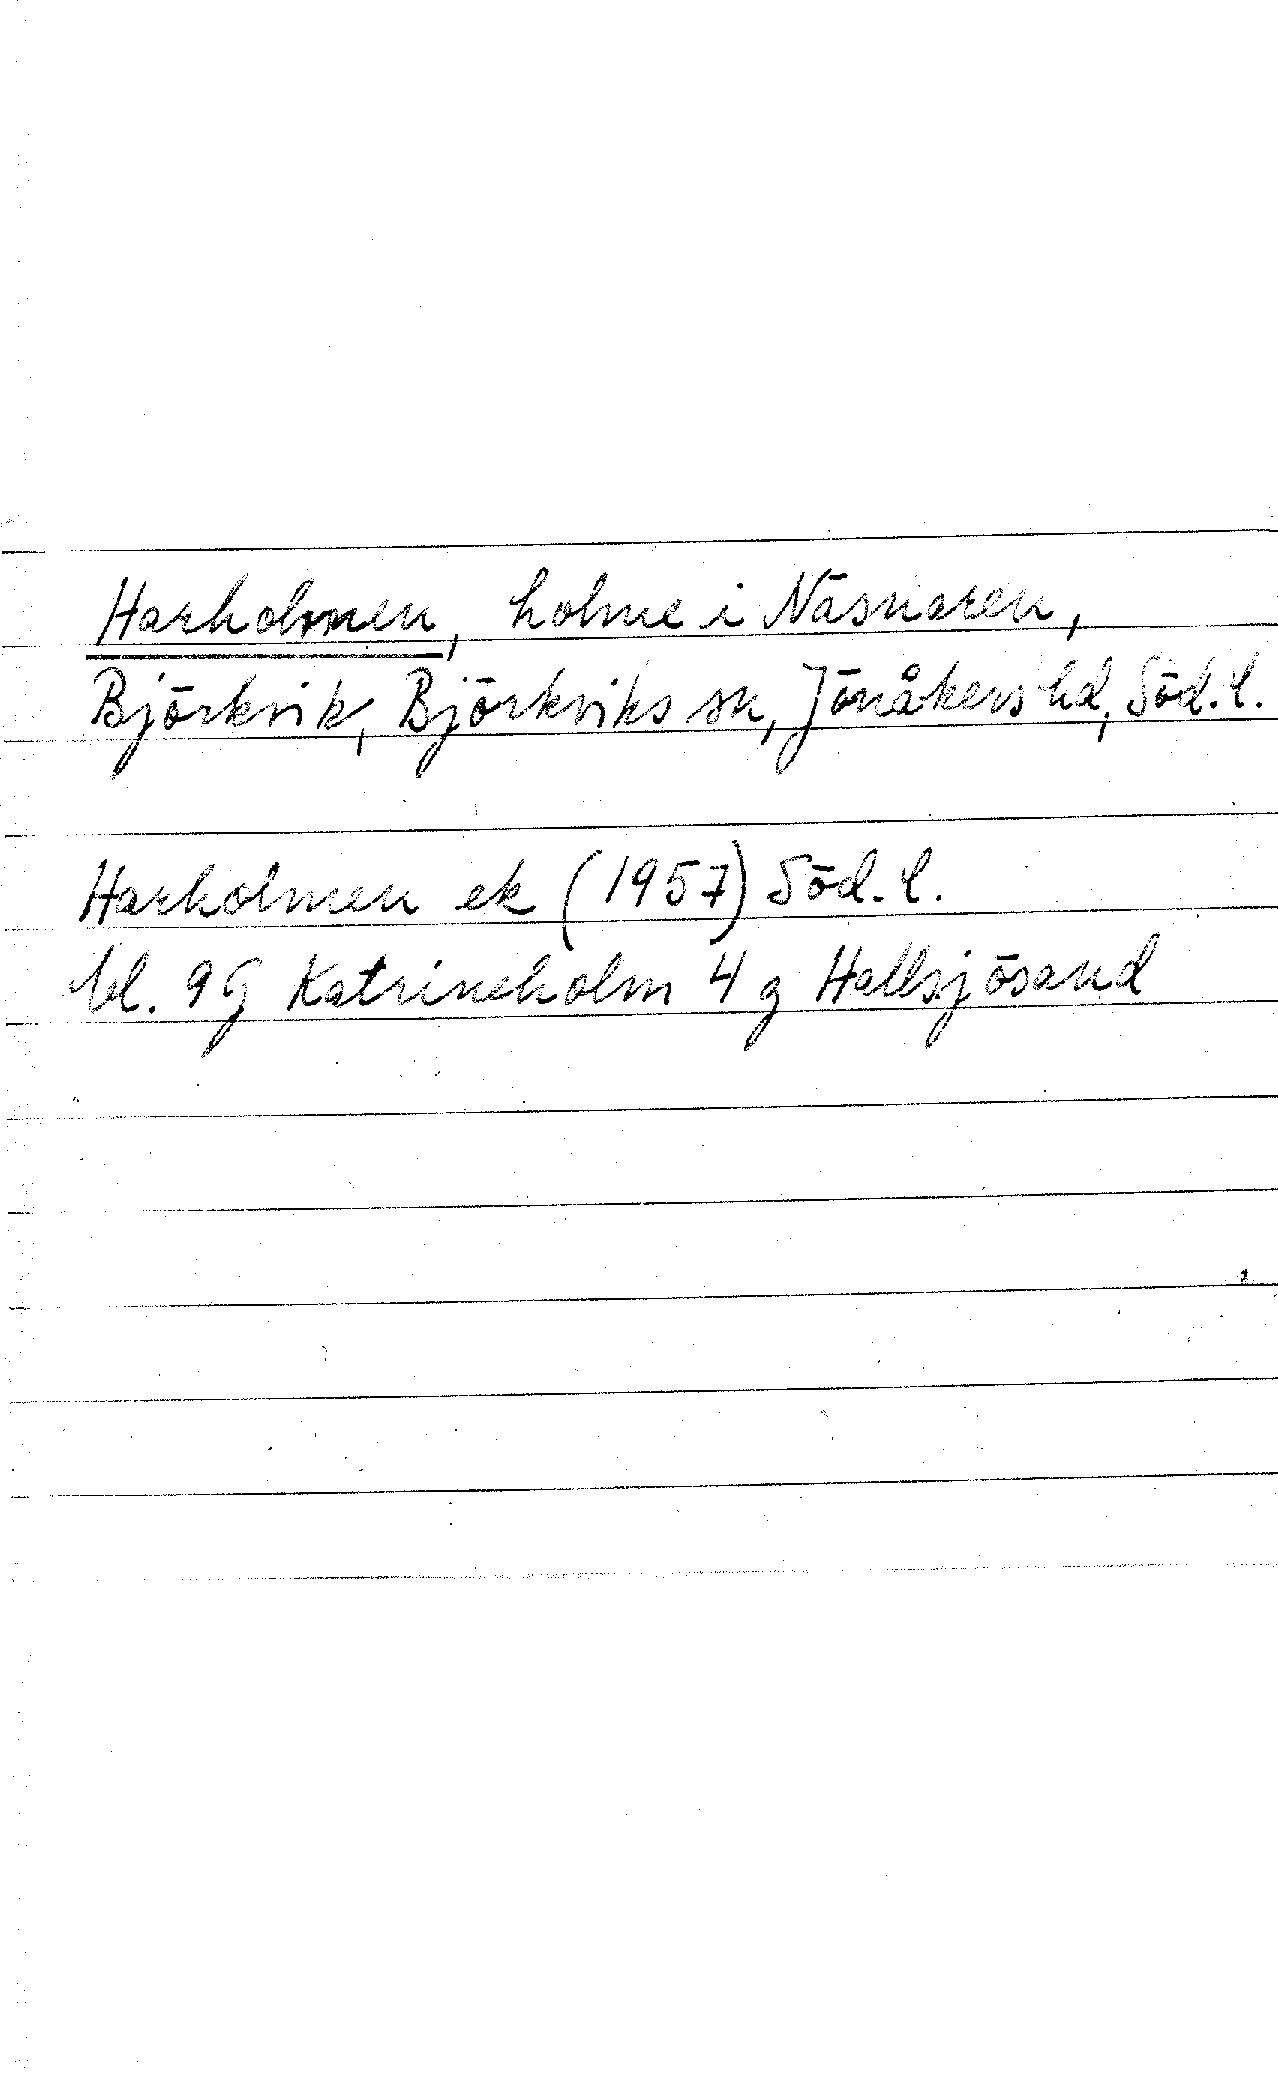 Harholmen, holme i Näsnaren,
Björkvik, Björkviks sn, Jönåkers hd, Söd. l.
Harholmen ek (1957) Söd. l.
bl. 9G Katrineholm 4 g Hallsjösand